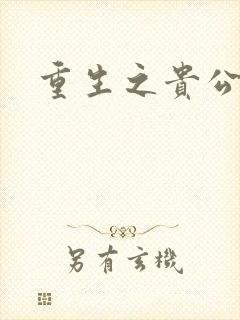 重生之貴公
另有玄機